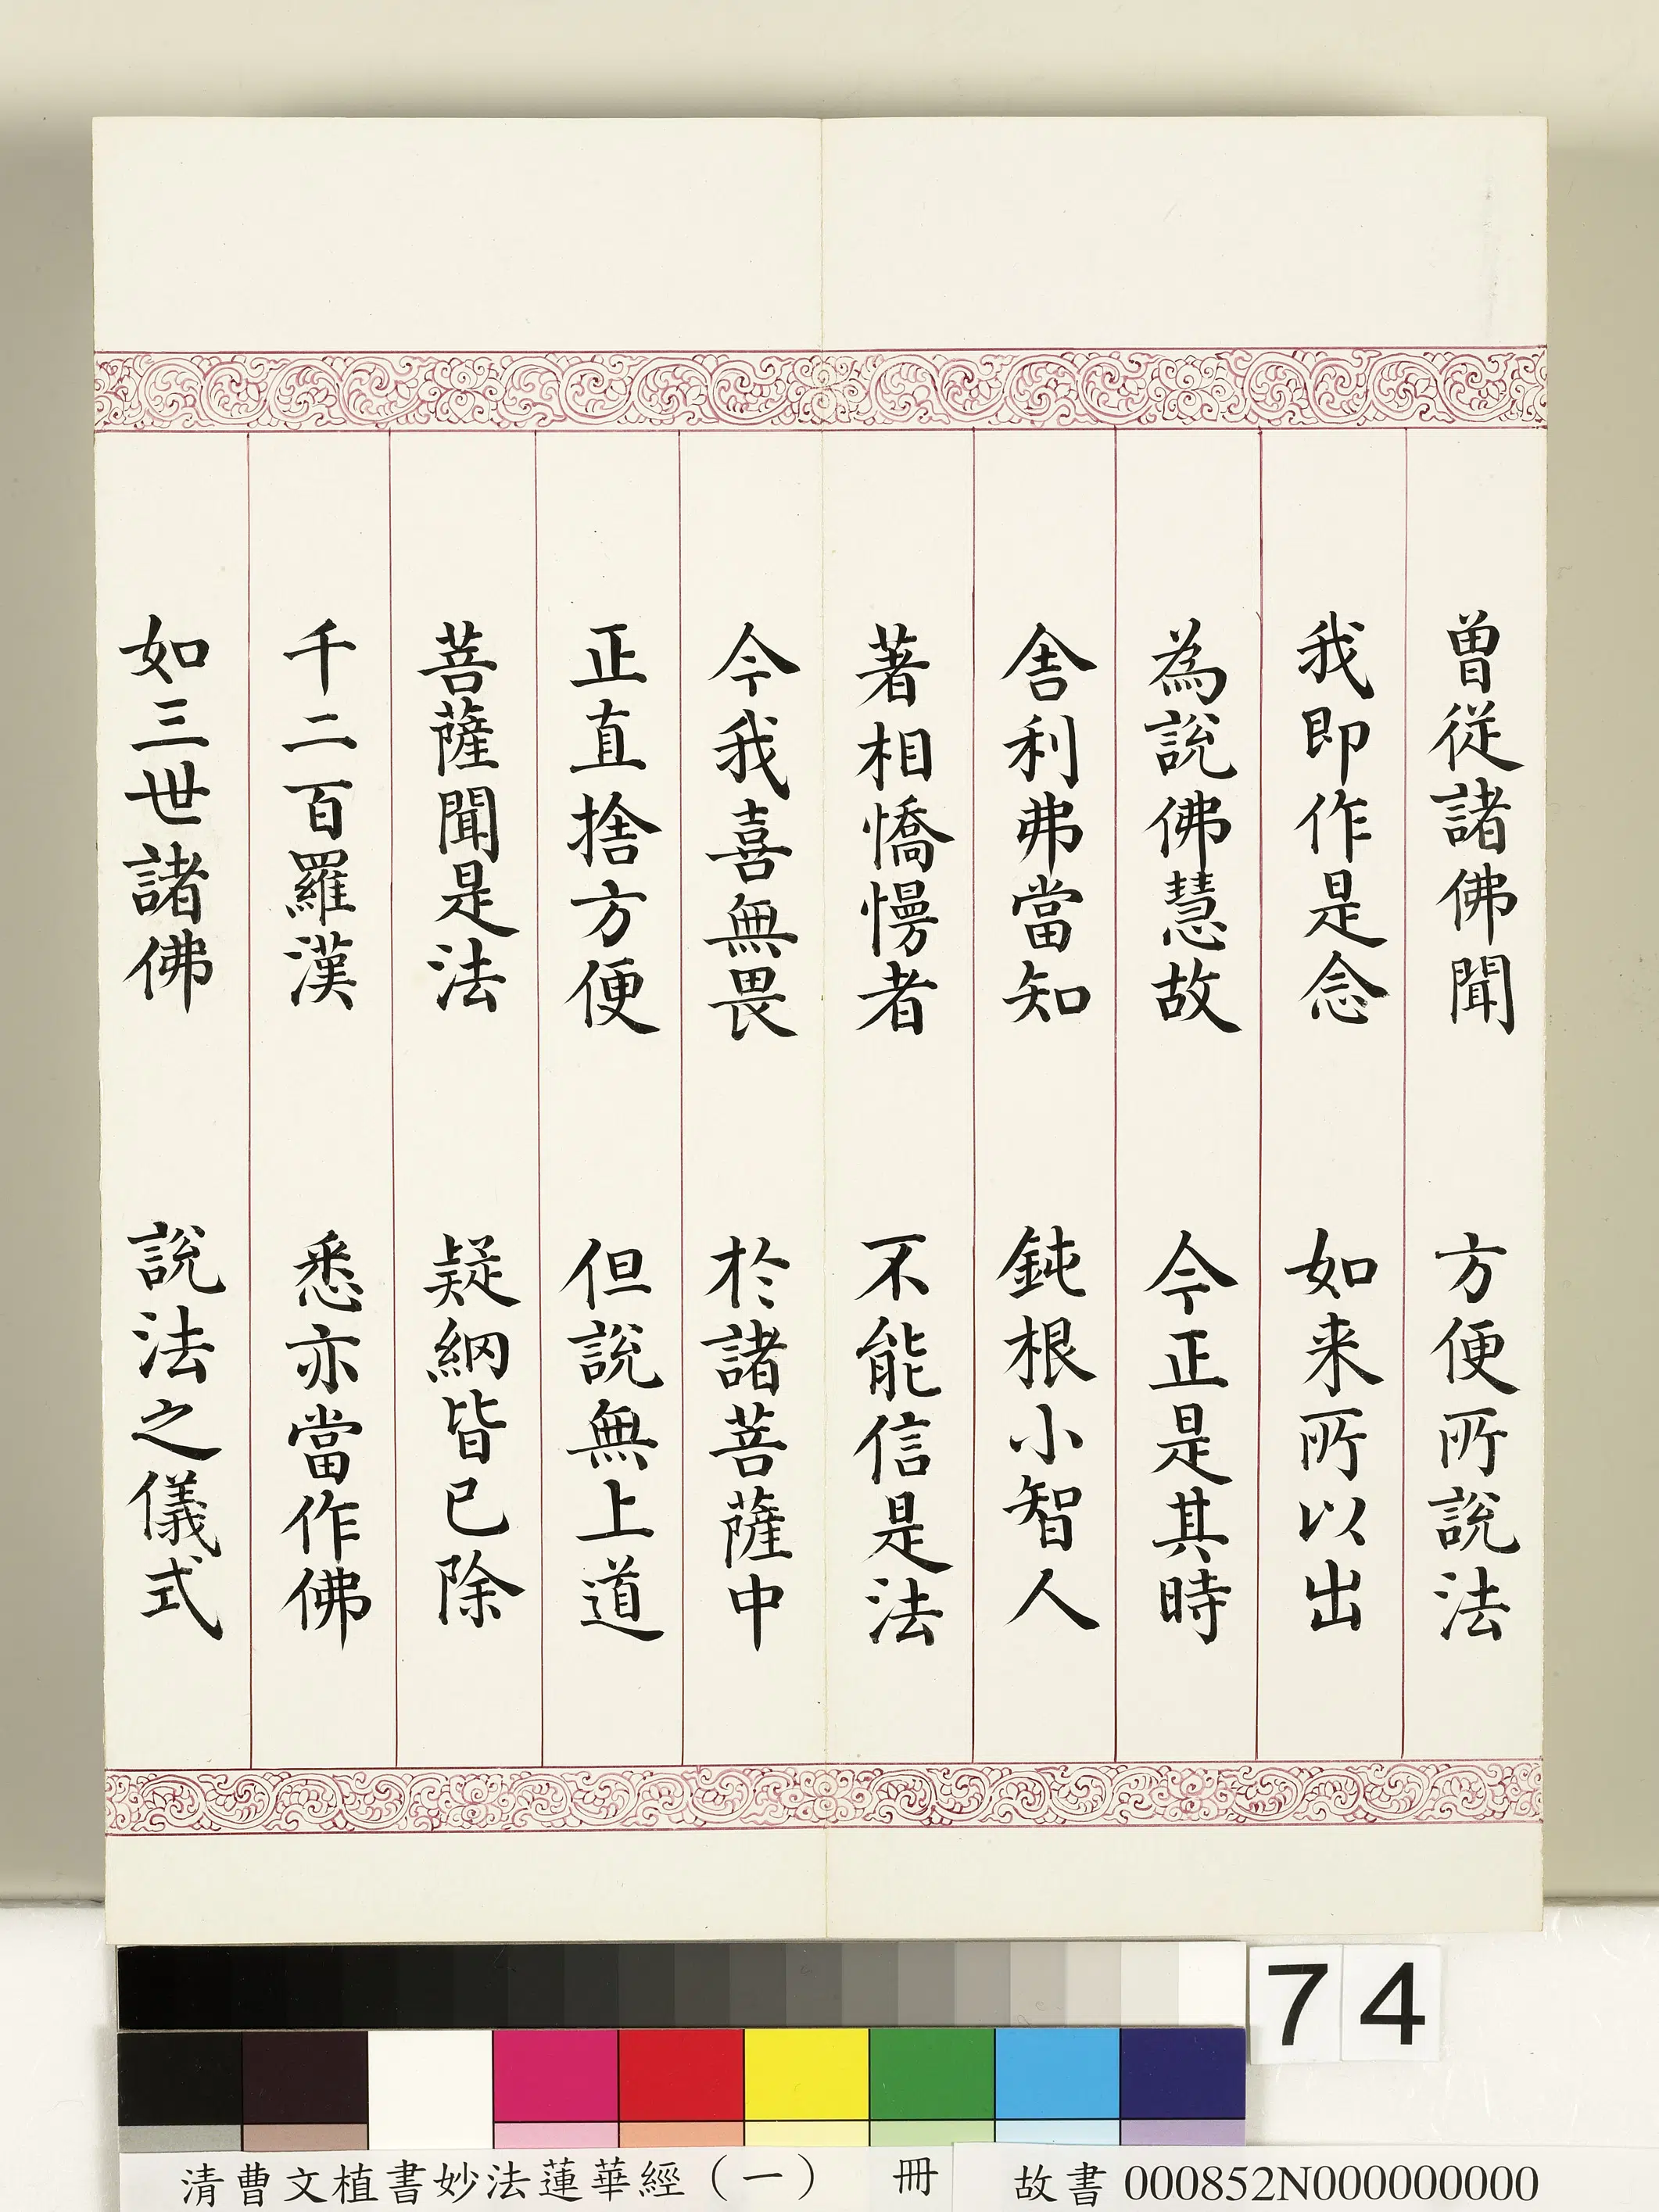 曾從諸佛聞 方便所說法
我即作是念 如来所以出
為說佛慧故 今正是其時
舍利弗當知 鈍根小智人
著相憍慢者 不能信是法
今我喜無畏 於諸菩薩中
正直捨方便 但說無上道
菩薩聞是法 疑網皆已除
千二百羅漢 悉亦當作佛
如三世諸佛 說法之儀式
74
清曹文植書妙法蓮華經（一） 冊 故書 000852N000000000